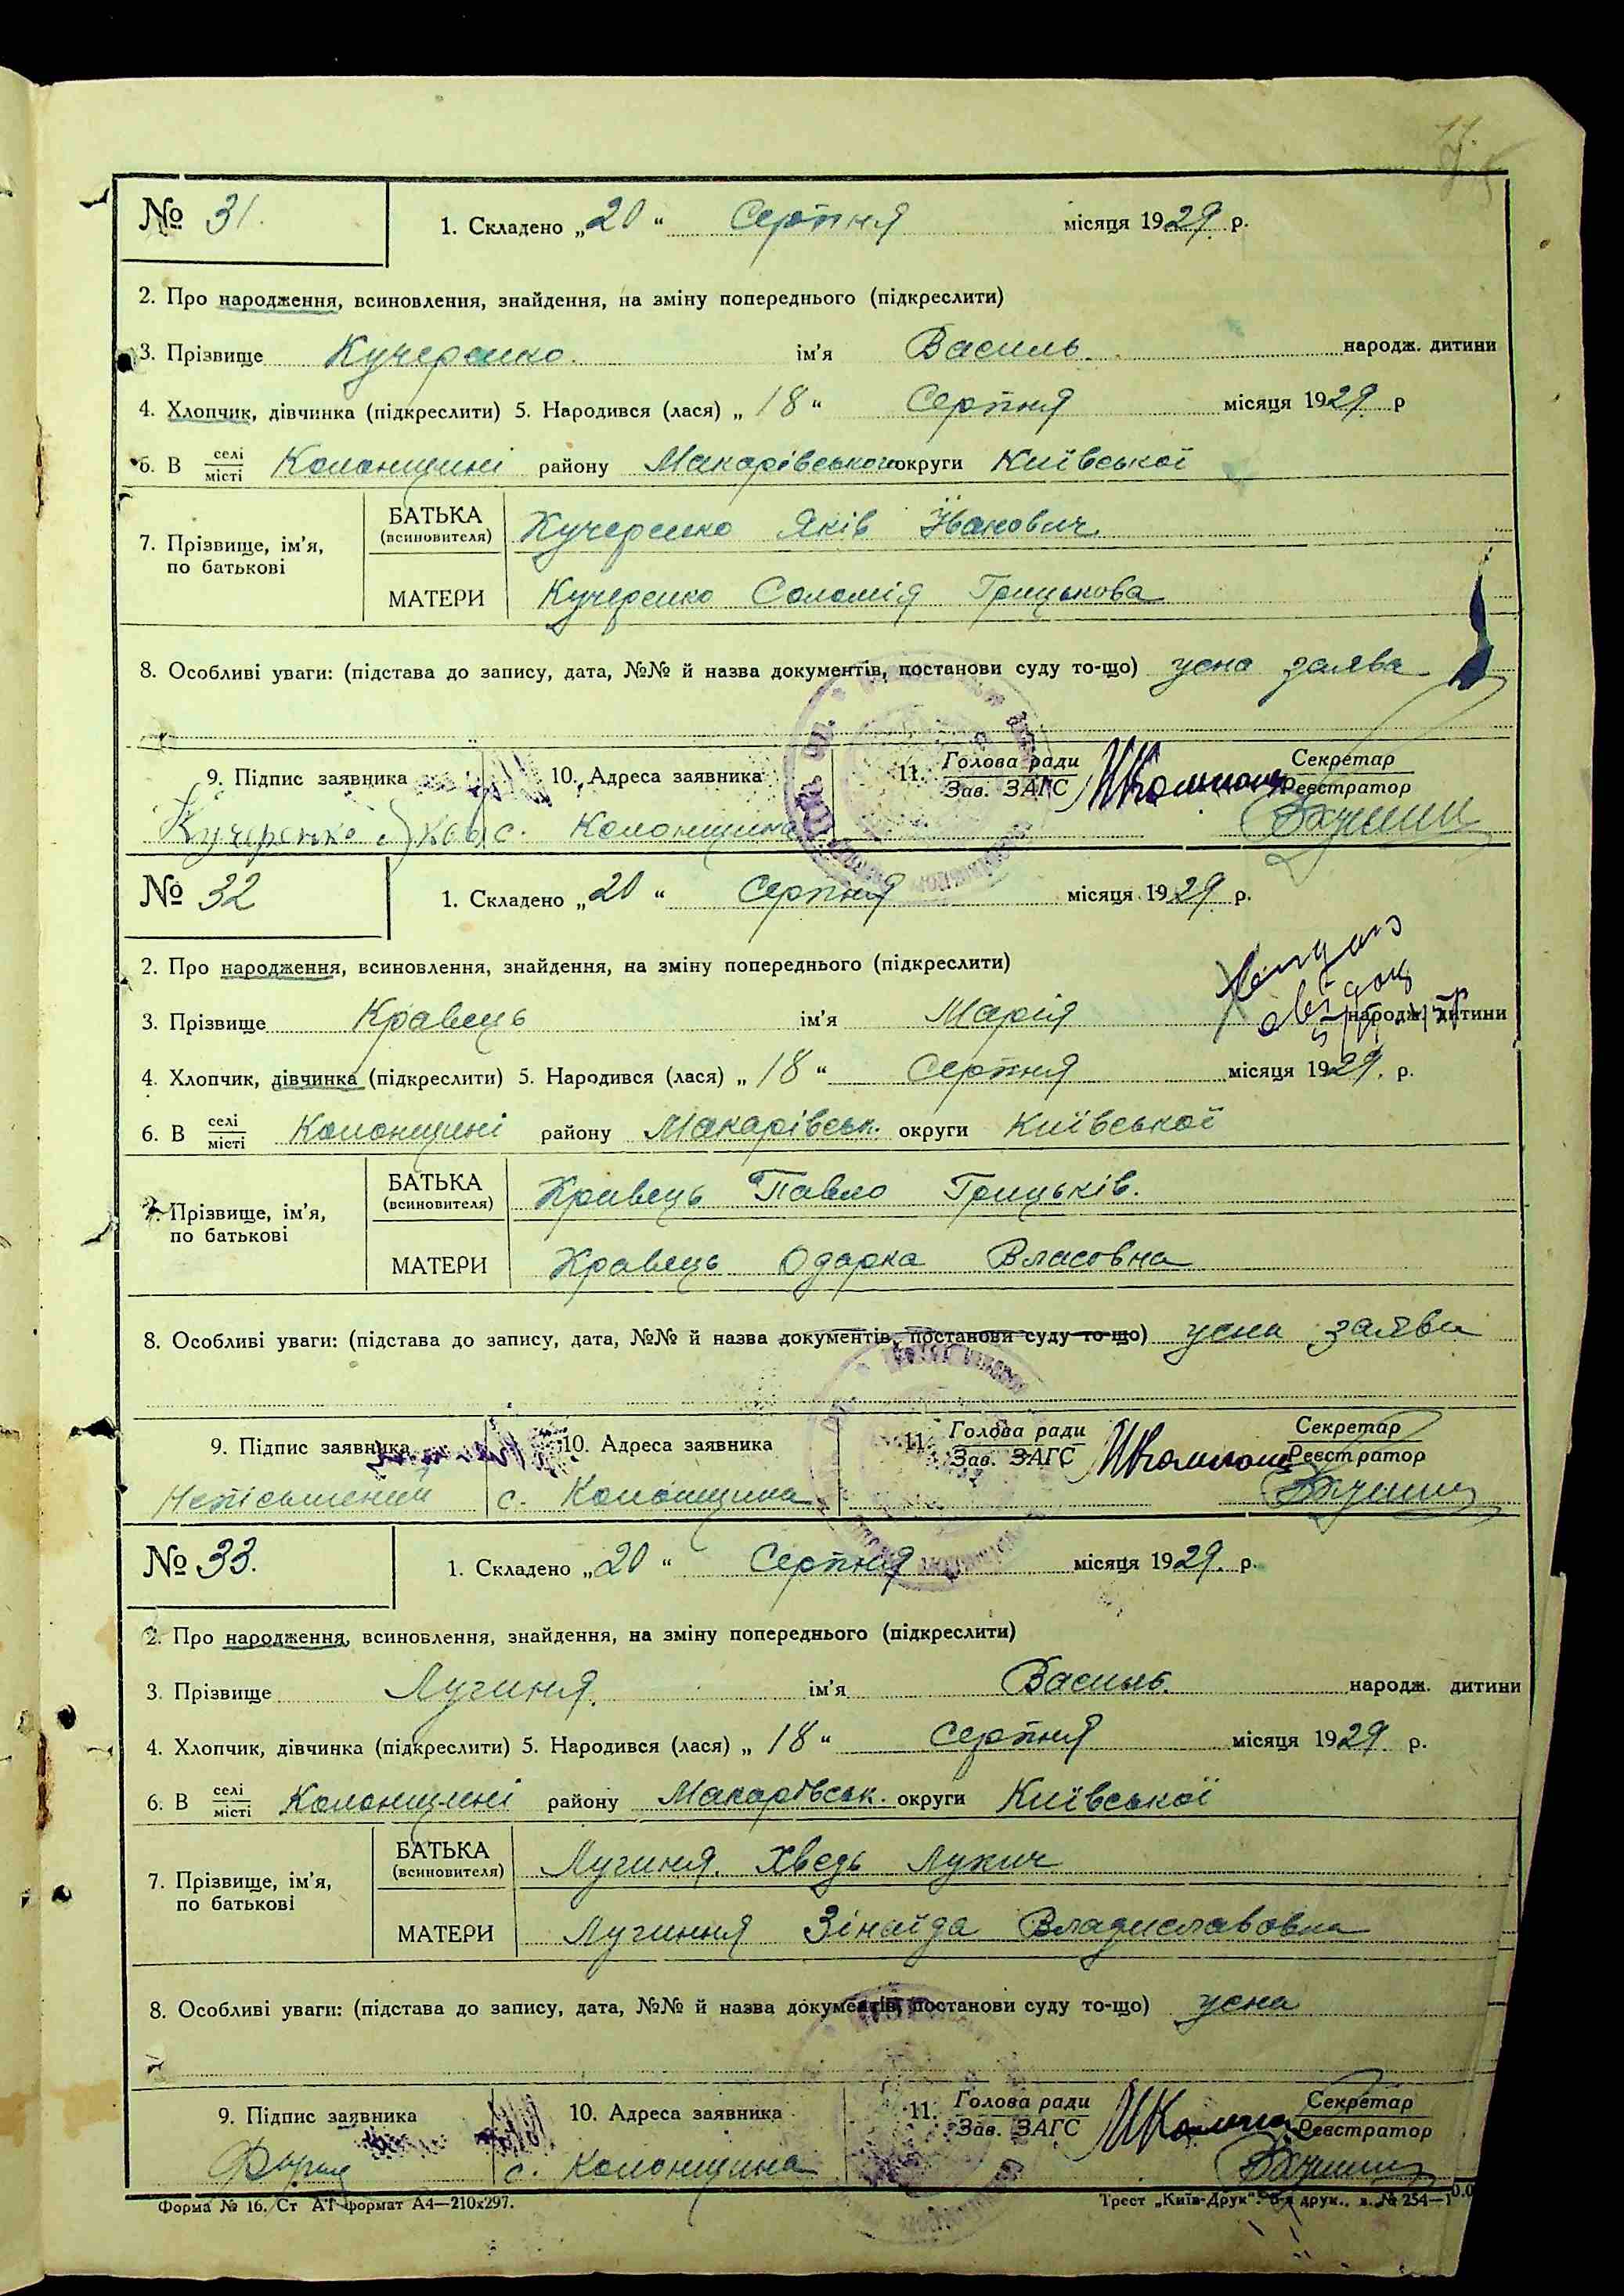 № 31. 1. Складено „20“ Серпня місяця 1929. р.
2. Про народження, всиновлення, знайдення, на зміну попереднього (підкреслити)
3. Прізвище Кучеренко. ім'я Василь. народж. дитини
4. Хлопчик, дівчинка (підкреслити) 5. Народився (лася) „18“ Серпня місяця 1929. р
6. В селі/місті Колонщині району Макарівського округи Київської
7. Прізвище, ім'я, по батькові
БАТЬКА (всиновителя) Кучеренко Яків Іванович
МАТЕРИ Кучеренко Соломія Грицькова
8. Особливі уваги: (підстава до запису, дата, №№ й назва документів, постанови суду то-що) усна заява
9. Підпис заявника 10. Адреса заявника 11. Голова ради/Зав. ЗАГС Секретар/Реєстратор
Кучеренко с. Колонщина
№ 32 1. Складено „20“ Серпня місяця 1929. р.
2. Про народження, всиновлення, знайдення, на зміну попереднього (підкреслити)
3. Прізвище Кравець ім'я Марія народж. дитини
4. Хлопчик, дівчинка (підкреслити) 5. Народився (лася) „18“ Серпня місяця 1929. р.
6. В селі/місті Колонщині району Макарівськ. округи Київської
7. Прізвище, ім'я, по батькові
БАТЬКА (всиновителя) Кравець Павло Грицьків.
МАТЕРИ Кравець Одарка Власовна
8. Особливі уваги: (підстава до запису, дата, №№ й назва документів, постанови суду то-що) усна заява
9. Підпис заявника 10. Адреса заявника 11. Голова ради/Зав. ЗАГС Секретар/Реєстратор
Неписьменний с. Колонщина
№ 33. 1. Складено „20“ Серпня місяця 1929. р.
2. Про народження, всиновлення, знайдення, на зміну попереднього (підкреслити)
3. Прізвище Лугиня. ім'я Василь. народж. дитини
4. Хлопчик, дівчинка (підкреслити) 5. Народився (лася) „18“ Серпня місяця 1929. р.
6. В селі/місті Колонщині району Макарівськ. округи Київської
7. Прізвище, ім'я, по батькові
БАТЬКА (всиновителя) Лугиня. Хведь Лукич
МАТЕРИ Лугиння Зінаїда Владиславовна
8. Особливі уваги: (підстава до запису, дата, №№ й назва документів, постанови суду то-що) усна
9. Підпис заявника 10. Адреса заявника 11. Голова ради/Зав. ЗАГС Секретар/Реєстратор
с. Колонщина
Форма № 16. Ст А4 формат А4—210х297. Трест „Київ-Друк“. друк., з. № 254—1